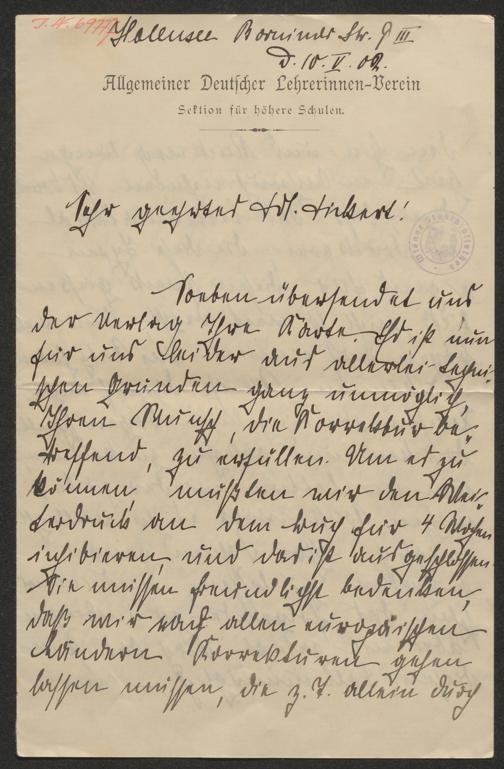 J. N. 697
Halensee Bornimer Str. 9 III
d. 10. V. 02.
Allgemeiner Deutscher Lehrerinnen-Verein
Sektion für höhere Schulen.
Sehr geehrtes Frl.
Soeben übersendet uns
der Verlag Ihre Karte. Es ist nun
für uns leider aus allerlei techni-
schen Gründen ganz unmöglich,
Ihren Wunsch, die Korrektur be-
treffend, zu erfüllen. Um es zu
können, müßten wir den Wei-
terdruck an dem Buch für 4 Wochen
inhibieren, und das ist ausgeschlossen.
Sie müssen freundlichst bedenken,
daß wir nach allen europäischen
Ländern Korrekturen gehen
lassen müssen, die z. T. allein durch